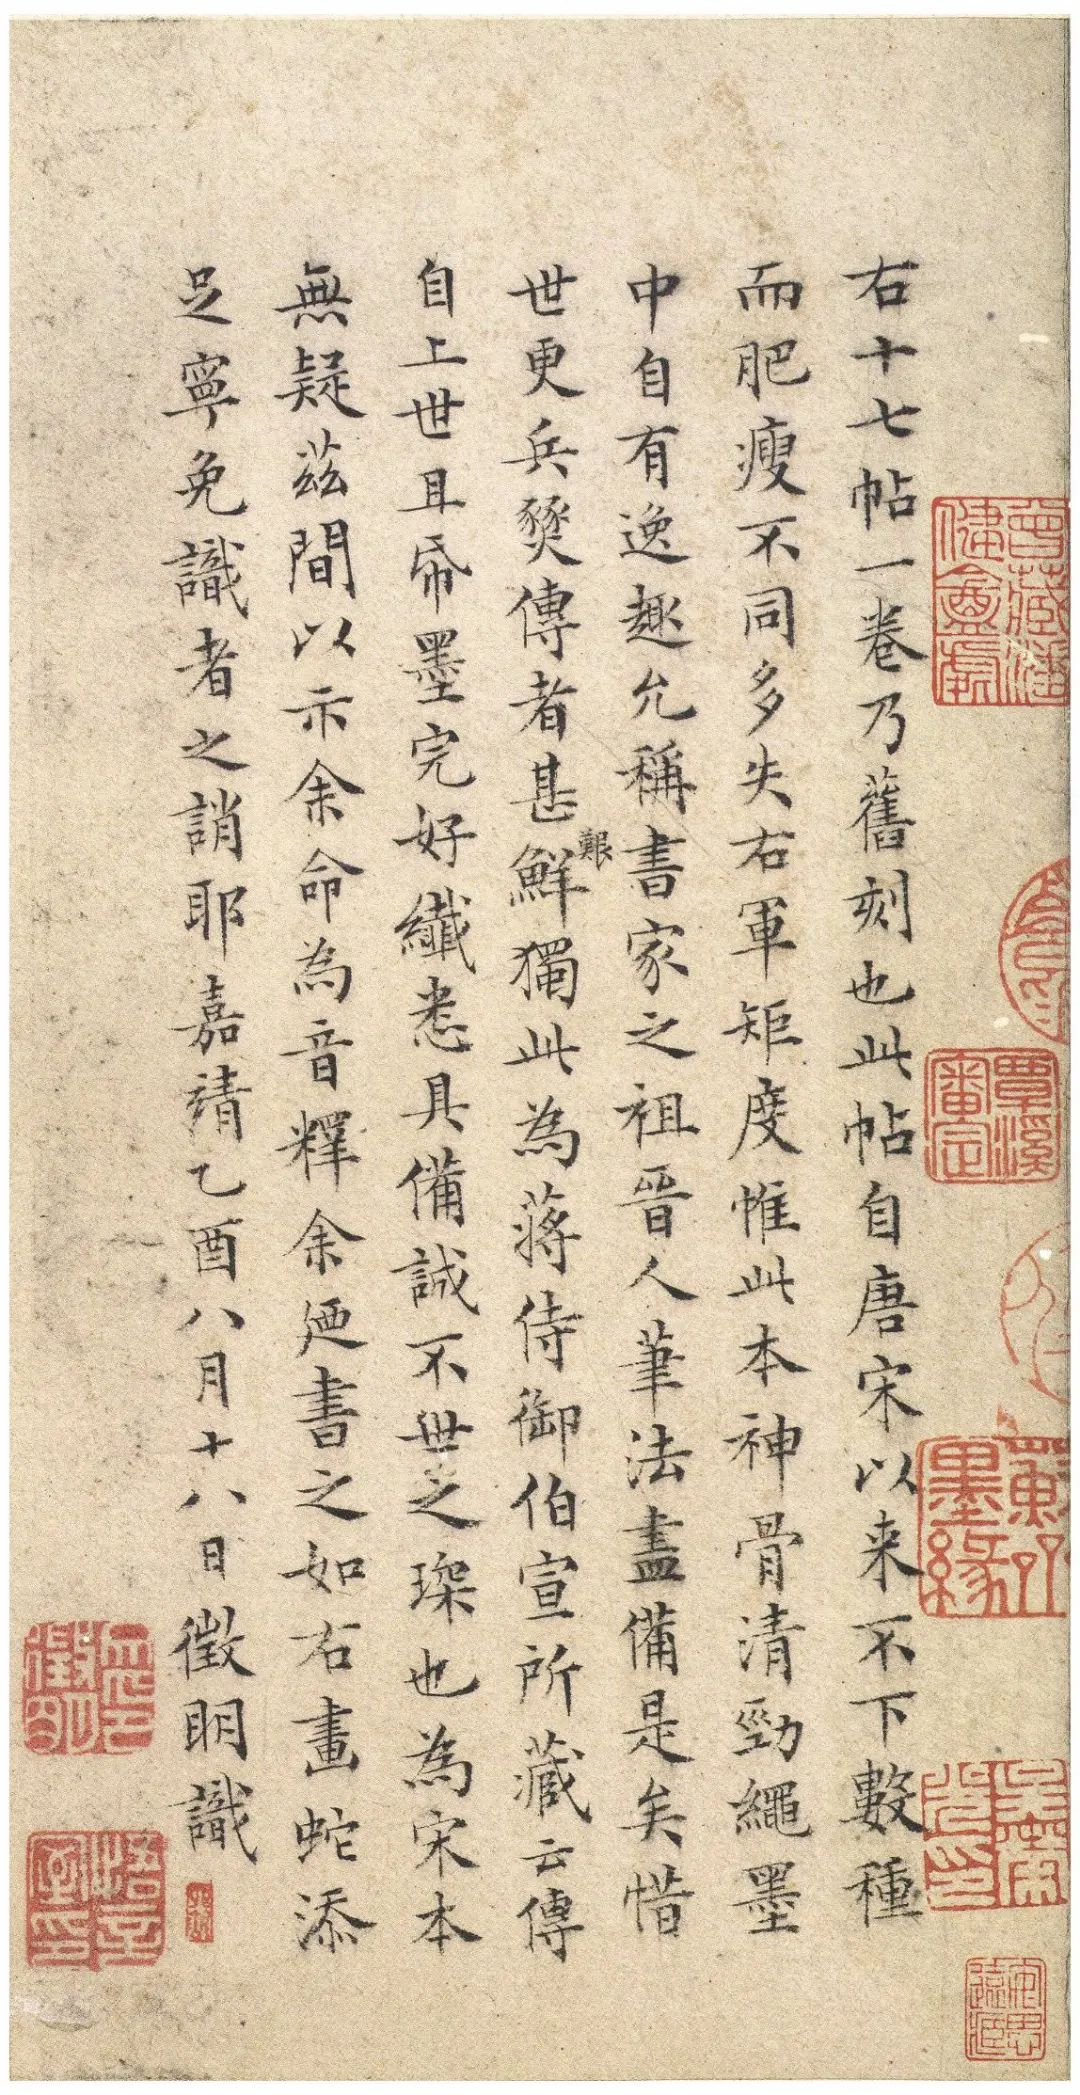 右十七帖一卷乃舊刻也此帖自唐宋以来不下數種
而肥瘦不同多失右軍矩度惟此本神骨清勁繩墨
中自有逸趣允稱書家之祖晉人筆法盡備是矣惜
世更兵燹傳者甚鮮獨此為蔣侍御伯宣所藏云傳
艱
自上世且帋墨完好纖悉具備誠不世之琛也為宋本
無疑茲間以示余命為音釋余廼書之如右畫蛇添
足寧免識者之誚耶嘉靖乙酉八月十八日徵明識
曾藏潘
健盦處
覃溪
審定
墨緣
徵明
悟言
室印